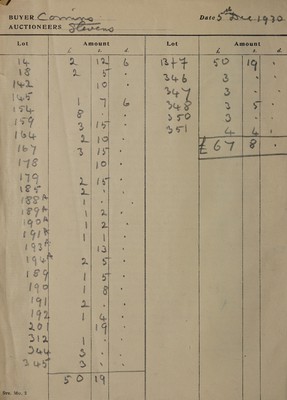 BUYER Comins Date 5th Dec 1930
AUCTIONEERS Stevens
Lot Amount Lot Amount
£ s. d. £ s. d.
14 2 12 6
18 2 5 .
142 10 .
145 1 7 6
154 8 . .
159 3 15 .
164 2 10 .
167 3 15 .
178 10 .
179 2 15 .
185 2 . .
188A 1 . .
189A 1 2 .
190A 1 2 .
191A 1 1 .
193A 13 .
194A 2 5 .
189 1 5 .
190 1 8 .
191 2 . .
192 1 4 .
201 19 .
312 1 . .
344 3 . .
345 3 . .
50 19
B/f 50 19 .
346 3 . .
347 3 . .
348 3 5 .
350 3 . .
351 4 4 .
£ 67 8 .